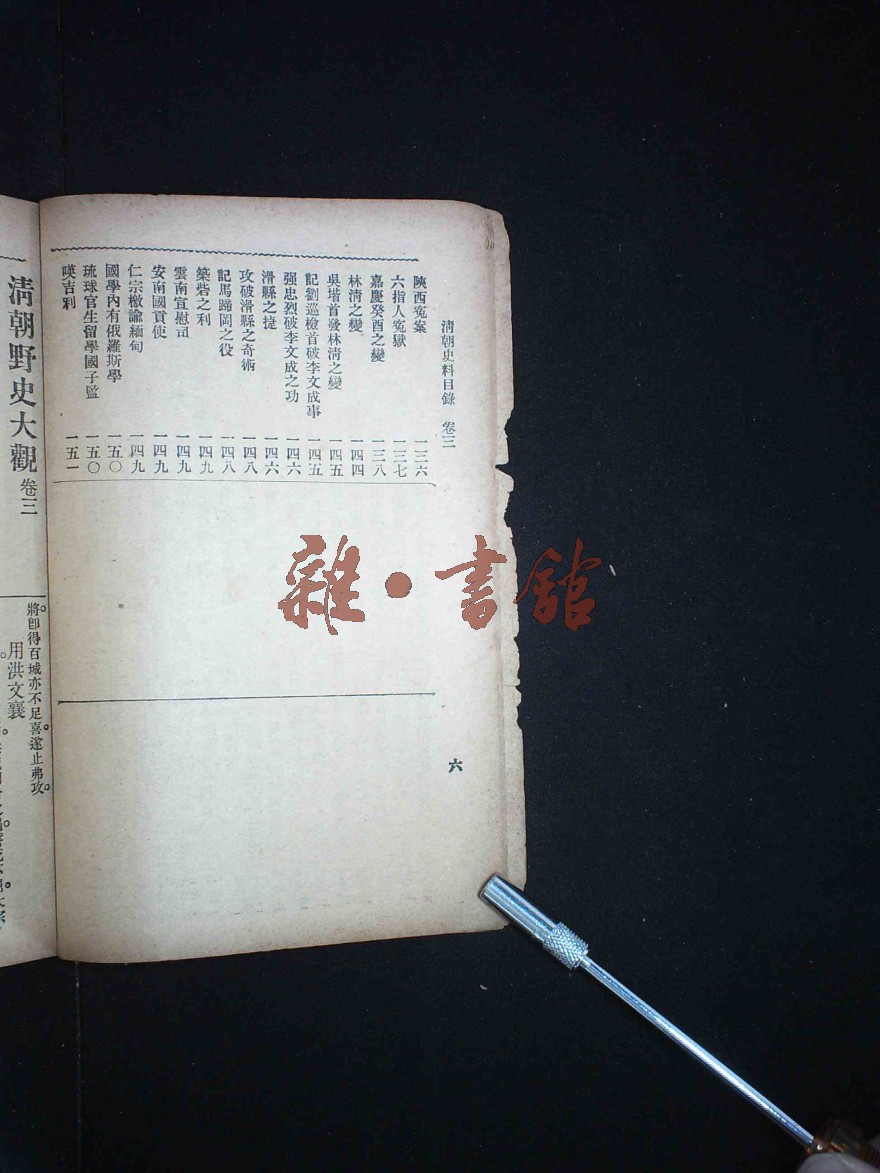 清朝史料目錄　卷三
陝西寃案　一三六
六指人寃獄　一三七
嘉慶癸酉之變　一三八
林清之變　一四四
吳堦首發林清之變　一四五
記劉巡檢首破李文成事　一四五
强忠烈破李文成之功　一四六
滑縣之捷　一四六
攻破滑縣之奇術　一四八
記馬蹄岡之役　一四八
築砦之利　一四九
雲南宣慰司　一四九
安南國貢使　一四九
仁宗檄諭緬甸　一四九
國學內有俄羅斯學　一五〇
琉球官生留學國子監　一五〇
暎吉利　一五一
六
雜•書館
清朝野史大觀　卷三
將卽得百城亦不足喜。遂止弗攻。
用洪文襄